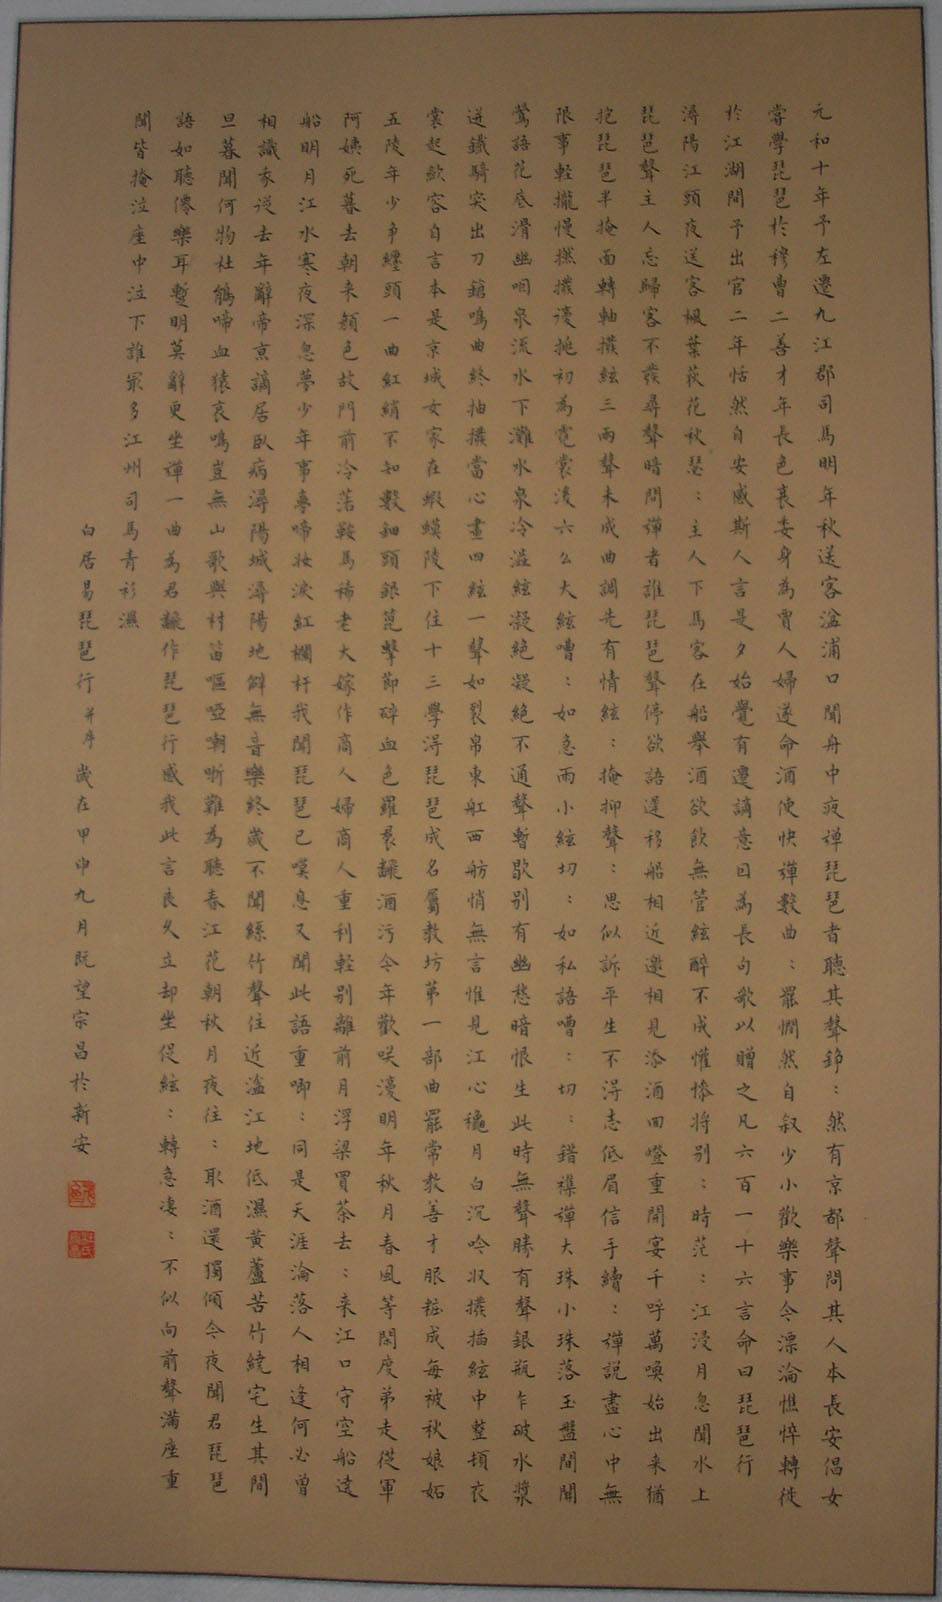 元和十年予左遷九江郡司馬明年秋送客湓浦口聞舟中夜彈琵琶者聽其聲錚：然有京都聲問其人本長安倡女
嘗學琵琶於穆曹二善才年長色衰委身為賈人婦遂命酒使快彈數曲：罷憫然自叙少小歡樂事今漂淪憔悴轉徙
於江湖間予出官二年恬然自安感斯人言是夕始覺有遷謫意因為長句歌以贈之凡六百一十六言命曰琵琶行
潯陽江頭夜送客楓葉荻花秋瑟：主人下馬客在船舉酒欲飲無管絃醉不成懽慘將别：時茫：江浸月忽聞水上
琵琶聲主人忘歸客不發尋聲暗問彈者誰琵琶聲停欲語遲移船相近邀相見添酒回燈重開宴千呼萬喚始出来猶
抱琵琶半掩面轉軸撥絃三兩聲未成曲調先有情絃：掩抑聲：思似訴平生不得志低眉信手續：彈說盡心中無
限事輕攏慢撚撥復挑初為霓裳後六么大絃嘈：如急雨小絃切：如私語嘈：切：錯襍彈大珠小珠落玉盤間關
鶯語花底滑幽咽泉流水下灘水泉冷澁絃凝絶凝絶不通聲暫歇别有幽愁暗恨生此時無聲勝有聲銀瓶乍破水漿
迸鐵騎突出刀鎗鳴曲終抽撥當心畫四絃一聲如裂帛東舡西舫悄無言惟見江心穐月白沉吟收撥插絃中整頓衣
裳起歛容自言本是京城女家在蝦蟆陵下住十三學得琵琶成名屬教坊苐一部曲罷常教善才服粧成每被秋娘妬
五陵年少争纏頭一曲紅綃不知數鈿頭銀篦擊節碎血色羅裙飜酒污今年歡咲復明年秋月春風等閑度弟走從軍
阿姨死暮去朝来顔色故門前冷落鞍馬稀老大嫁作商人婦商人重利輕别離前月浮梁買茶去：来江口守空船遶
船明月江水寒夜深忽夢少年事夢啼妝淚紅欄杆我聞琵琶已嘆息又聞此語重唧：同是天涯淪落人相逢何必曾
相識我從去年辭帝京謫居卧病潯陽城潯陽地僻無音樂終歲不聞絲竹聲住近湓江地低濕黄蘆苦竹繞宅生其間
旦暮聞何物杜鵑啼血猿哀鳴豈無山歌與村笛嘔啞嘲哳難為聽春江花朝秋月夜往：取酒還獨傾今夜聞君琵琶
語如聽僊樂耳蹔明莫辭更坐彈一曲為君飜作琵琶行感我此言良久立却坐促絃：轉急凄：不似向前聲滿座重
聞皆掩泣座中泣下誰㝡多江州司馬青衫濕
白居易琵琶行 并序 歲在甲申九月既望宗昌於新安